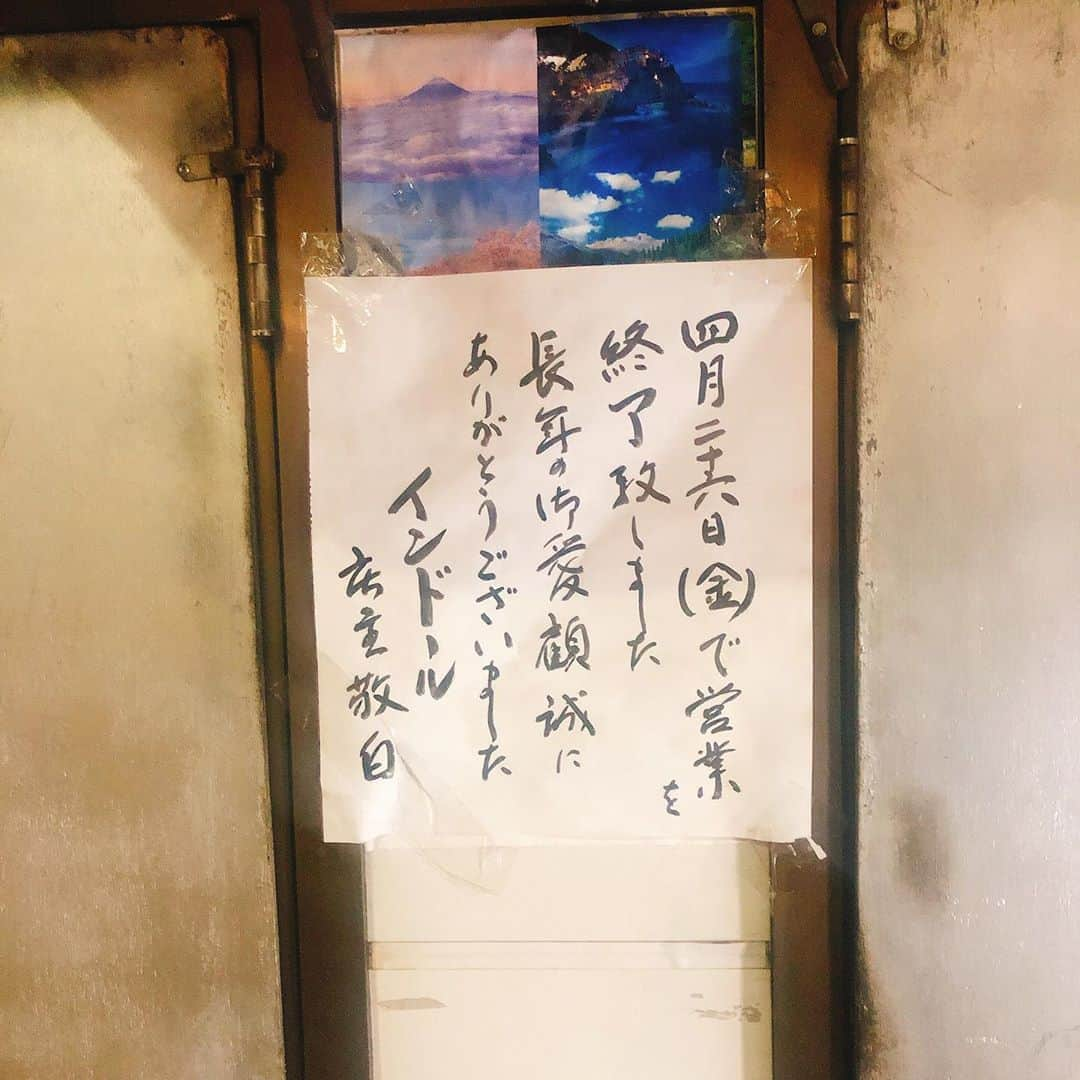 四月二十六日(金)で営業を
終了致しました
長年の御愛顧誠に
ありがとうございました
インドール
店主敬白